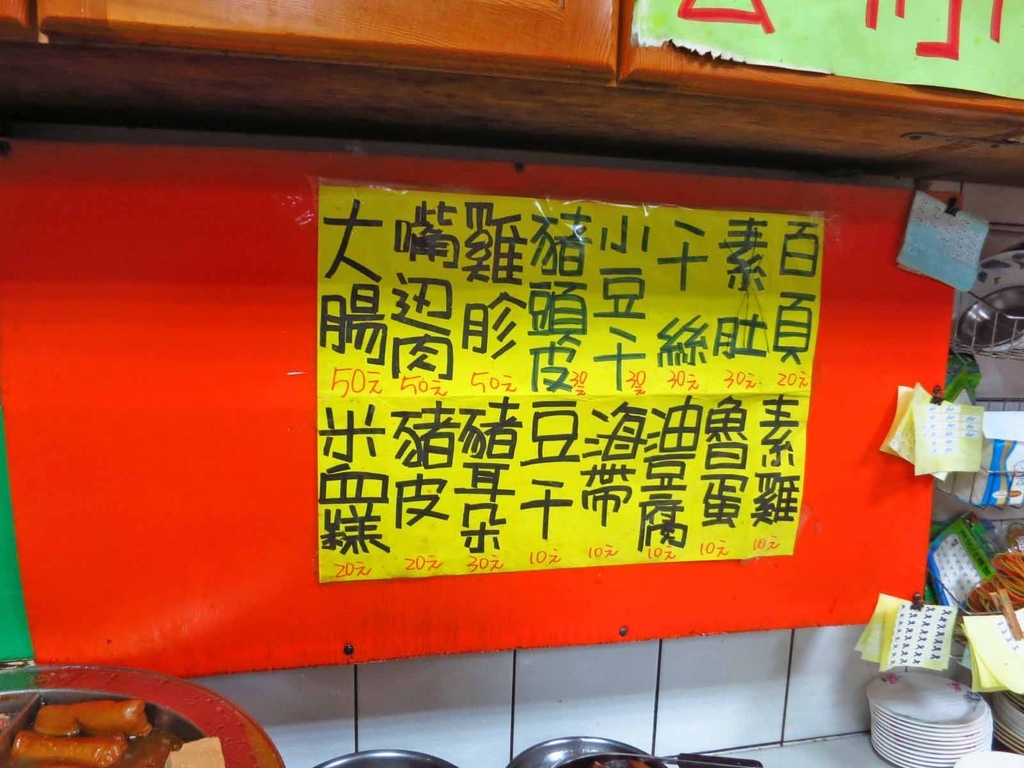 百頁 20元
素肚 30元
干絲 30元
小豆干 30元
豬頭皮 30元
雞胗 50元
嘴边肉 50元
大腸 50元
素雞 10元
魯蛋 10元
油豆腐 10元
海帶 10元
豆干 10元
豬耳朵 30元
豬皮 20元
米血糕 20元